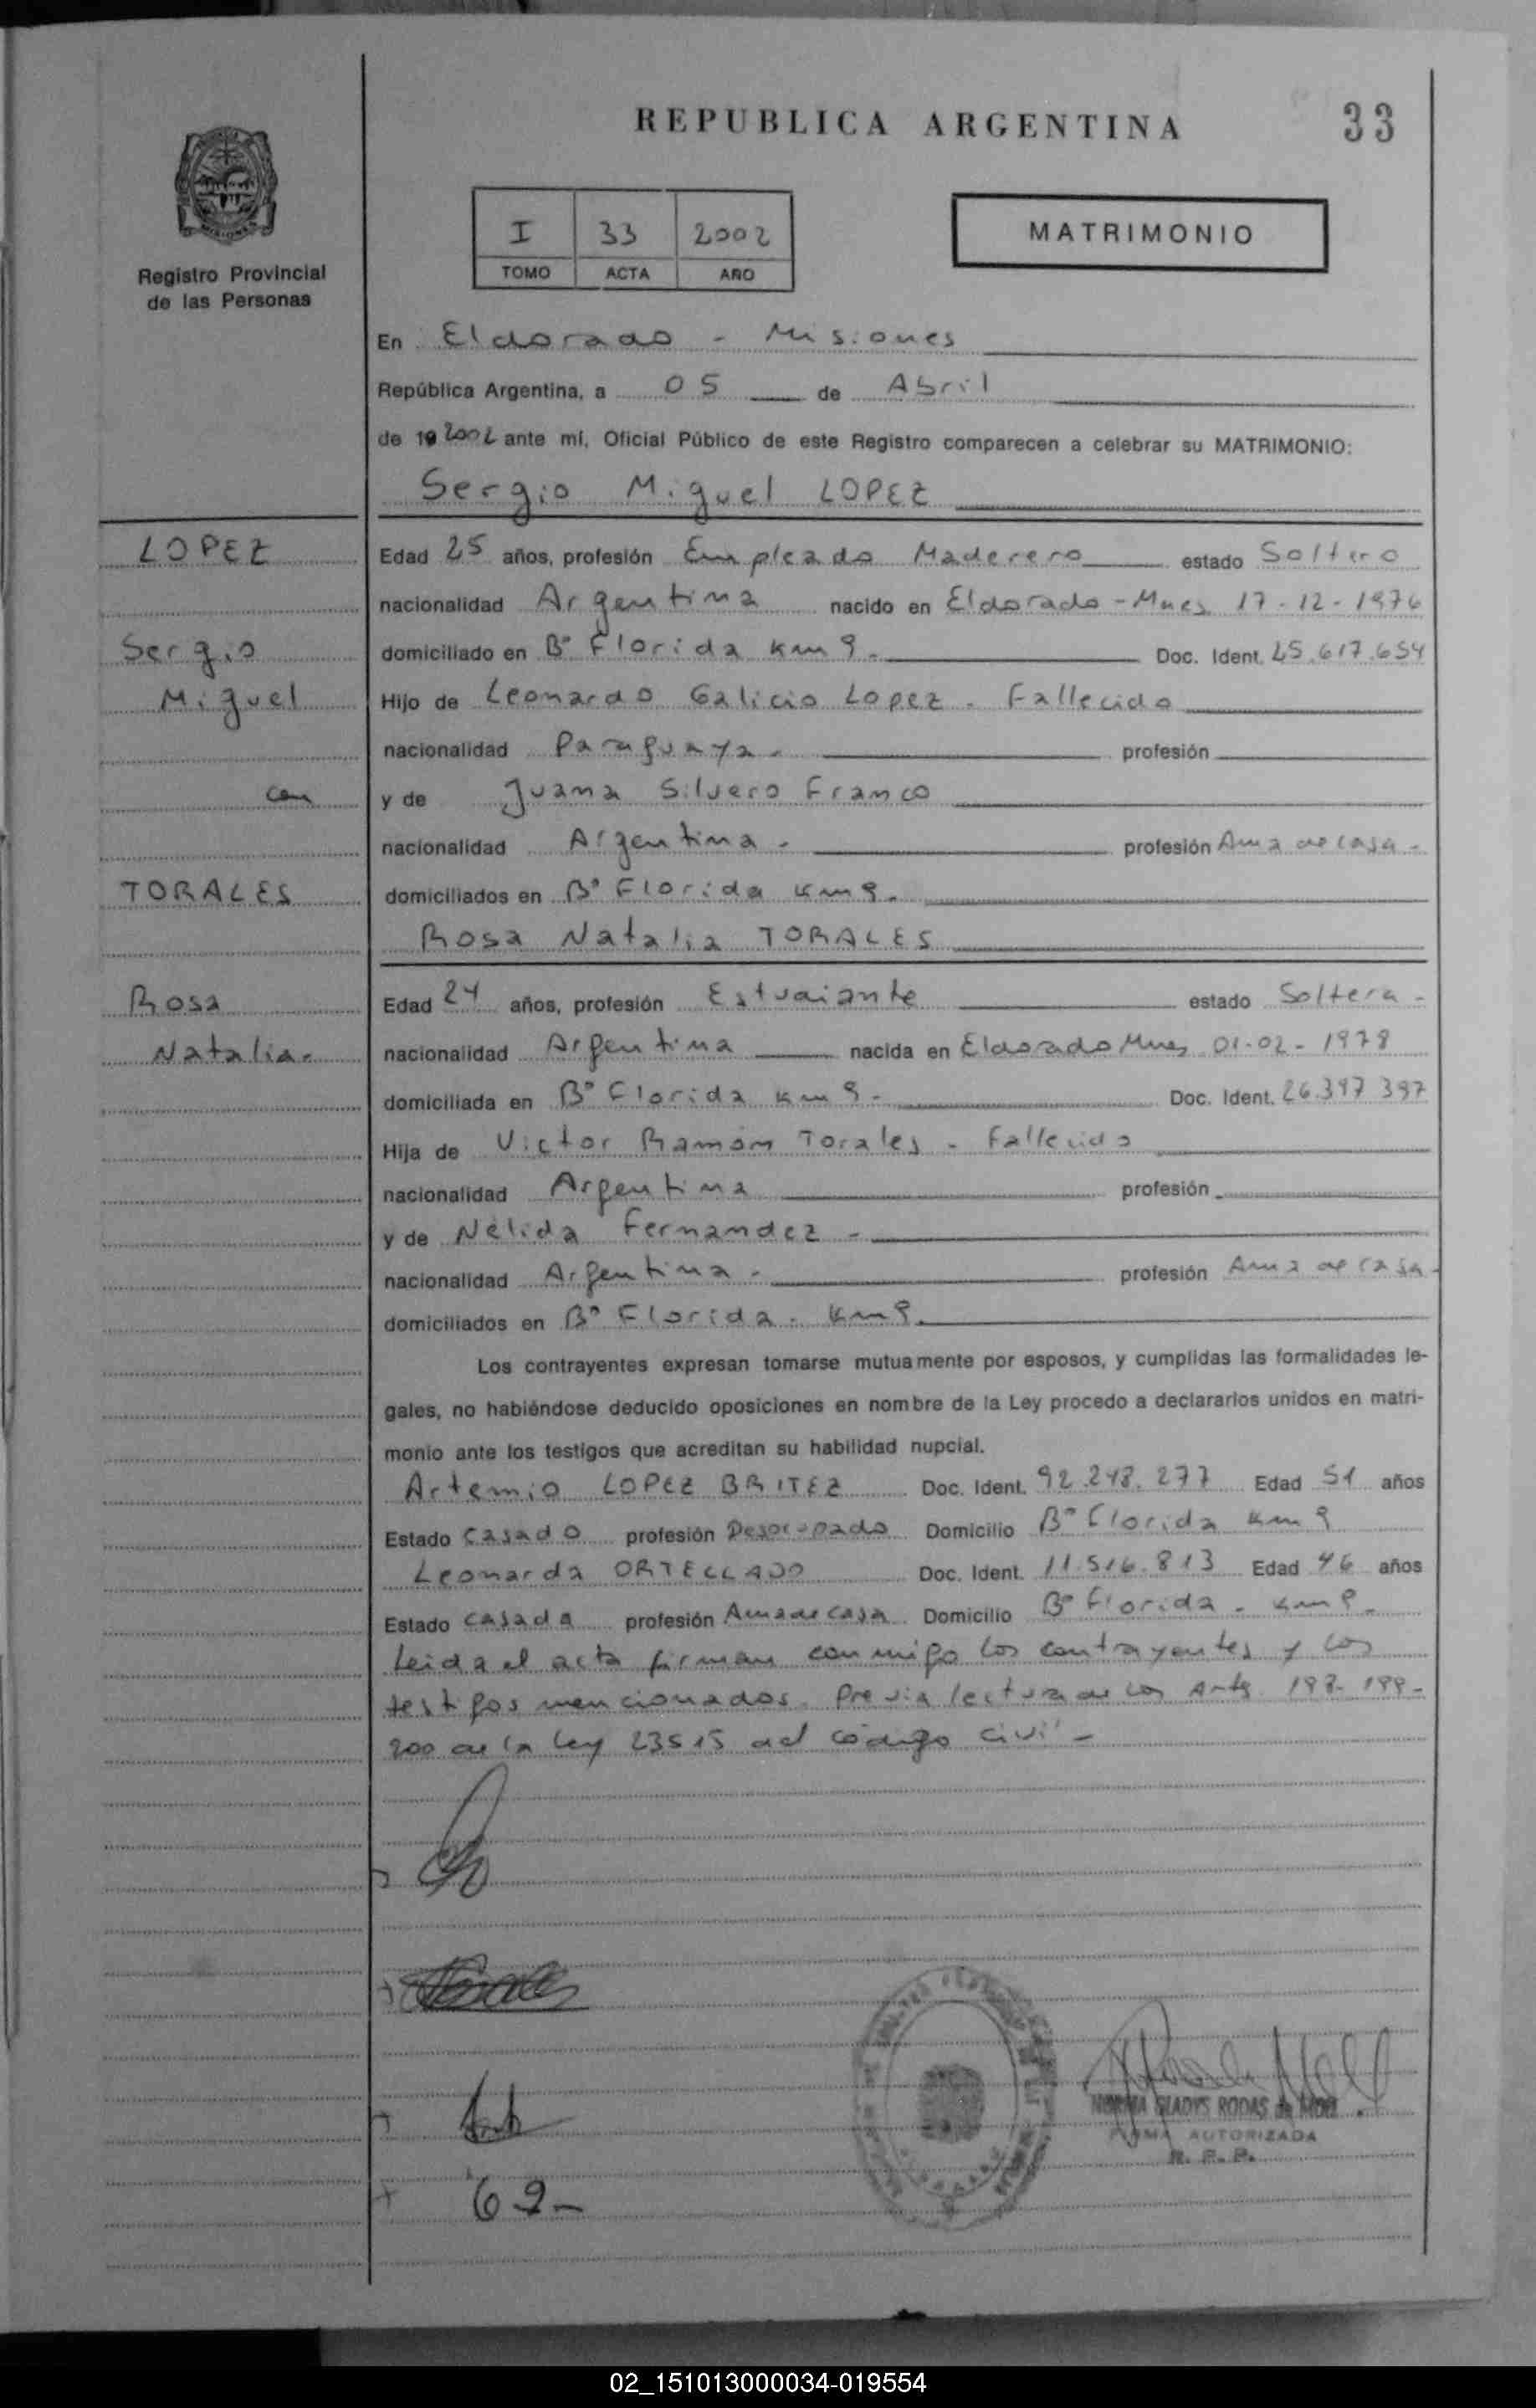 REPUBLICA ARGENTINA
33
I 33 2002
TOMO ACTA AÑO
MATRIMONIO
Registro Provincial
de las Personas
En Eldorado - Misiones
República Argentina, a 05 de Abril
de 19 2002 ante mí, Oficial Público de este Registro comparecen a celebrar su MATRIMONIO:
Sergio Miguel LOPEZ
LOPEZ
Sergio
Miguel
con
TORALES
Rosa
Natalia.
Edad 25 años, profesión Empleado Maderero estado Soltero
nacionalidad Argentina nacido en Eldorado - Mnes 17-12-1976
domiciliado en B° Florida km 9. Doc. Ident. 25.617.654
Hijo de Leonardo Galicio Lopez. Fallecido
nacionalidad Paraguaya. profesión
y de Juana Silvero Franco
nacionalidad Argentina. profesión Ama de casa-
domiciliados en B° Florida km 9.
Rosa Natalia TORALES
Edad 24 años, profesión Estudiante estado Soltera-
nacionalidad Argentina nacida en Eldorado Mnes 01-02-1978
domiciliada en B° Florida km 9- Doc. Ident. 26.397 397
Hija de Victor Ramón Torales - Fallecido
nacionalidad Argentina profesión
y de Nélida Fernandez -
nacionalidad Argentina. profesión Ama de casa-
domiciliados en B° Florida. km 9.
Los contrayentes expresan tomarse mutuamente por esposos, y cumplidas las formalidades le-
gales, no habiéndose deducido oposiciones en nombre de la Ley procedo a declararlos unidos en matri-
monio ante los testigos que acreditan su habilidad nupcial.
Artemio LOPEZ BRITEZ Doc. Ident. 92.248.277 Edad 51 años
Estado Casado profesión Desocupado Domicilio B° Florida km 9
Leonarda ORTELLADO Doc. Ident. 11.516.813 Edad 46 años
Estado Casada profesión Ama de casa Domicilio B° Florida - km 9-
Leida el acta firman conmigo los contrayentes y los
testigos mencionados. Previa lectura de los Arts. 198-199-
200 de la Ley 23515 del código civil-
NORMA GLADYS RODAS de MOLL
FIRMA AUTORIZADA
R. P. P.
02_151013000034-019554